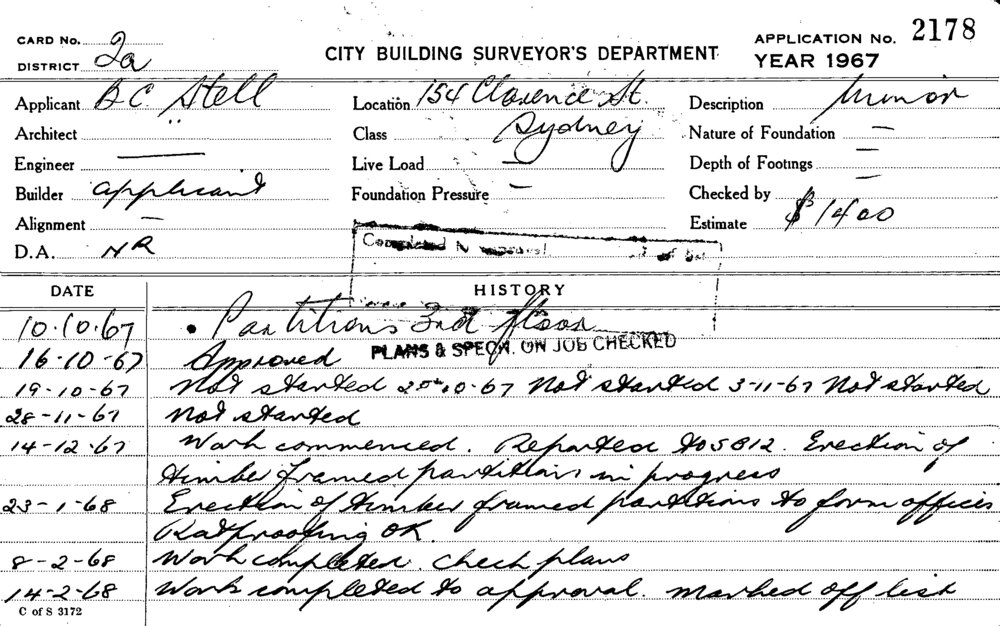 CARD No. 2a
DISTRICT
CITY BUILDING SURVEYOR'S DEPARTMENT
APPLICATION No. 2178
YEAR 1967
Applicant B C Stell Location 154 Clarence St. Description Minor
Architect " Class Sydney Nature of Foundation —
Engineer — Live Load — Depth of Footings —
Builder applicant Foundation Pressure — Checked by —
Alignment — Estimate $1400
D.A. NR Completed to approval
DATE HISTORY
10.10.67 • Partitions 3rd floor
16-10-67 Approved PLANS & SPECN. ON JOB CHECKED
19-10-67 Not started 25-10-67 Not started 3-11-67 Not started
28-11-67 Not started
14-12-67 Work commenced. Reported to S B12. Erection of
timber framed partitions in progress
23-1-68 Erection of timber framed partitions to form offices
Ratproofing OK.
8-2-68 Work completed. check plans
14-2-68 Work completed to approval. marked off list
C of S 3172